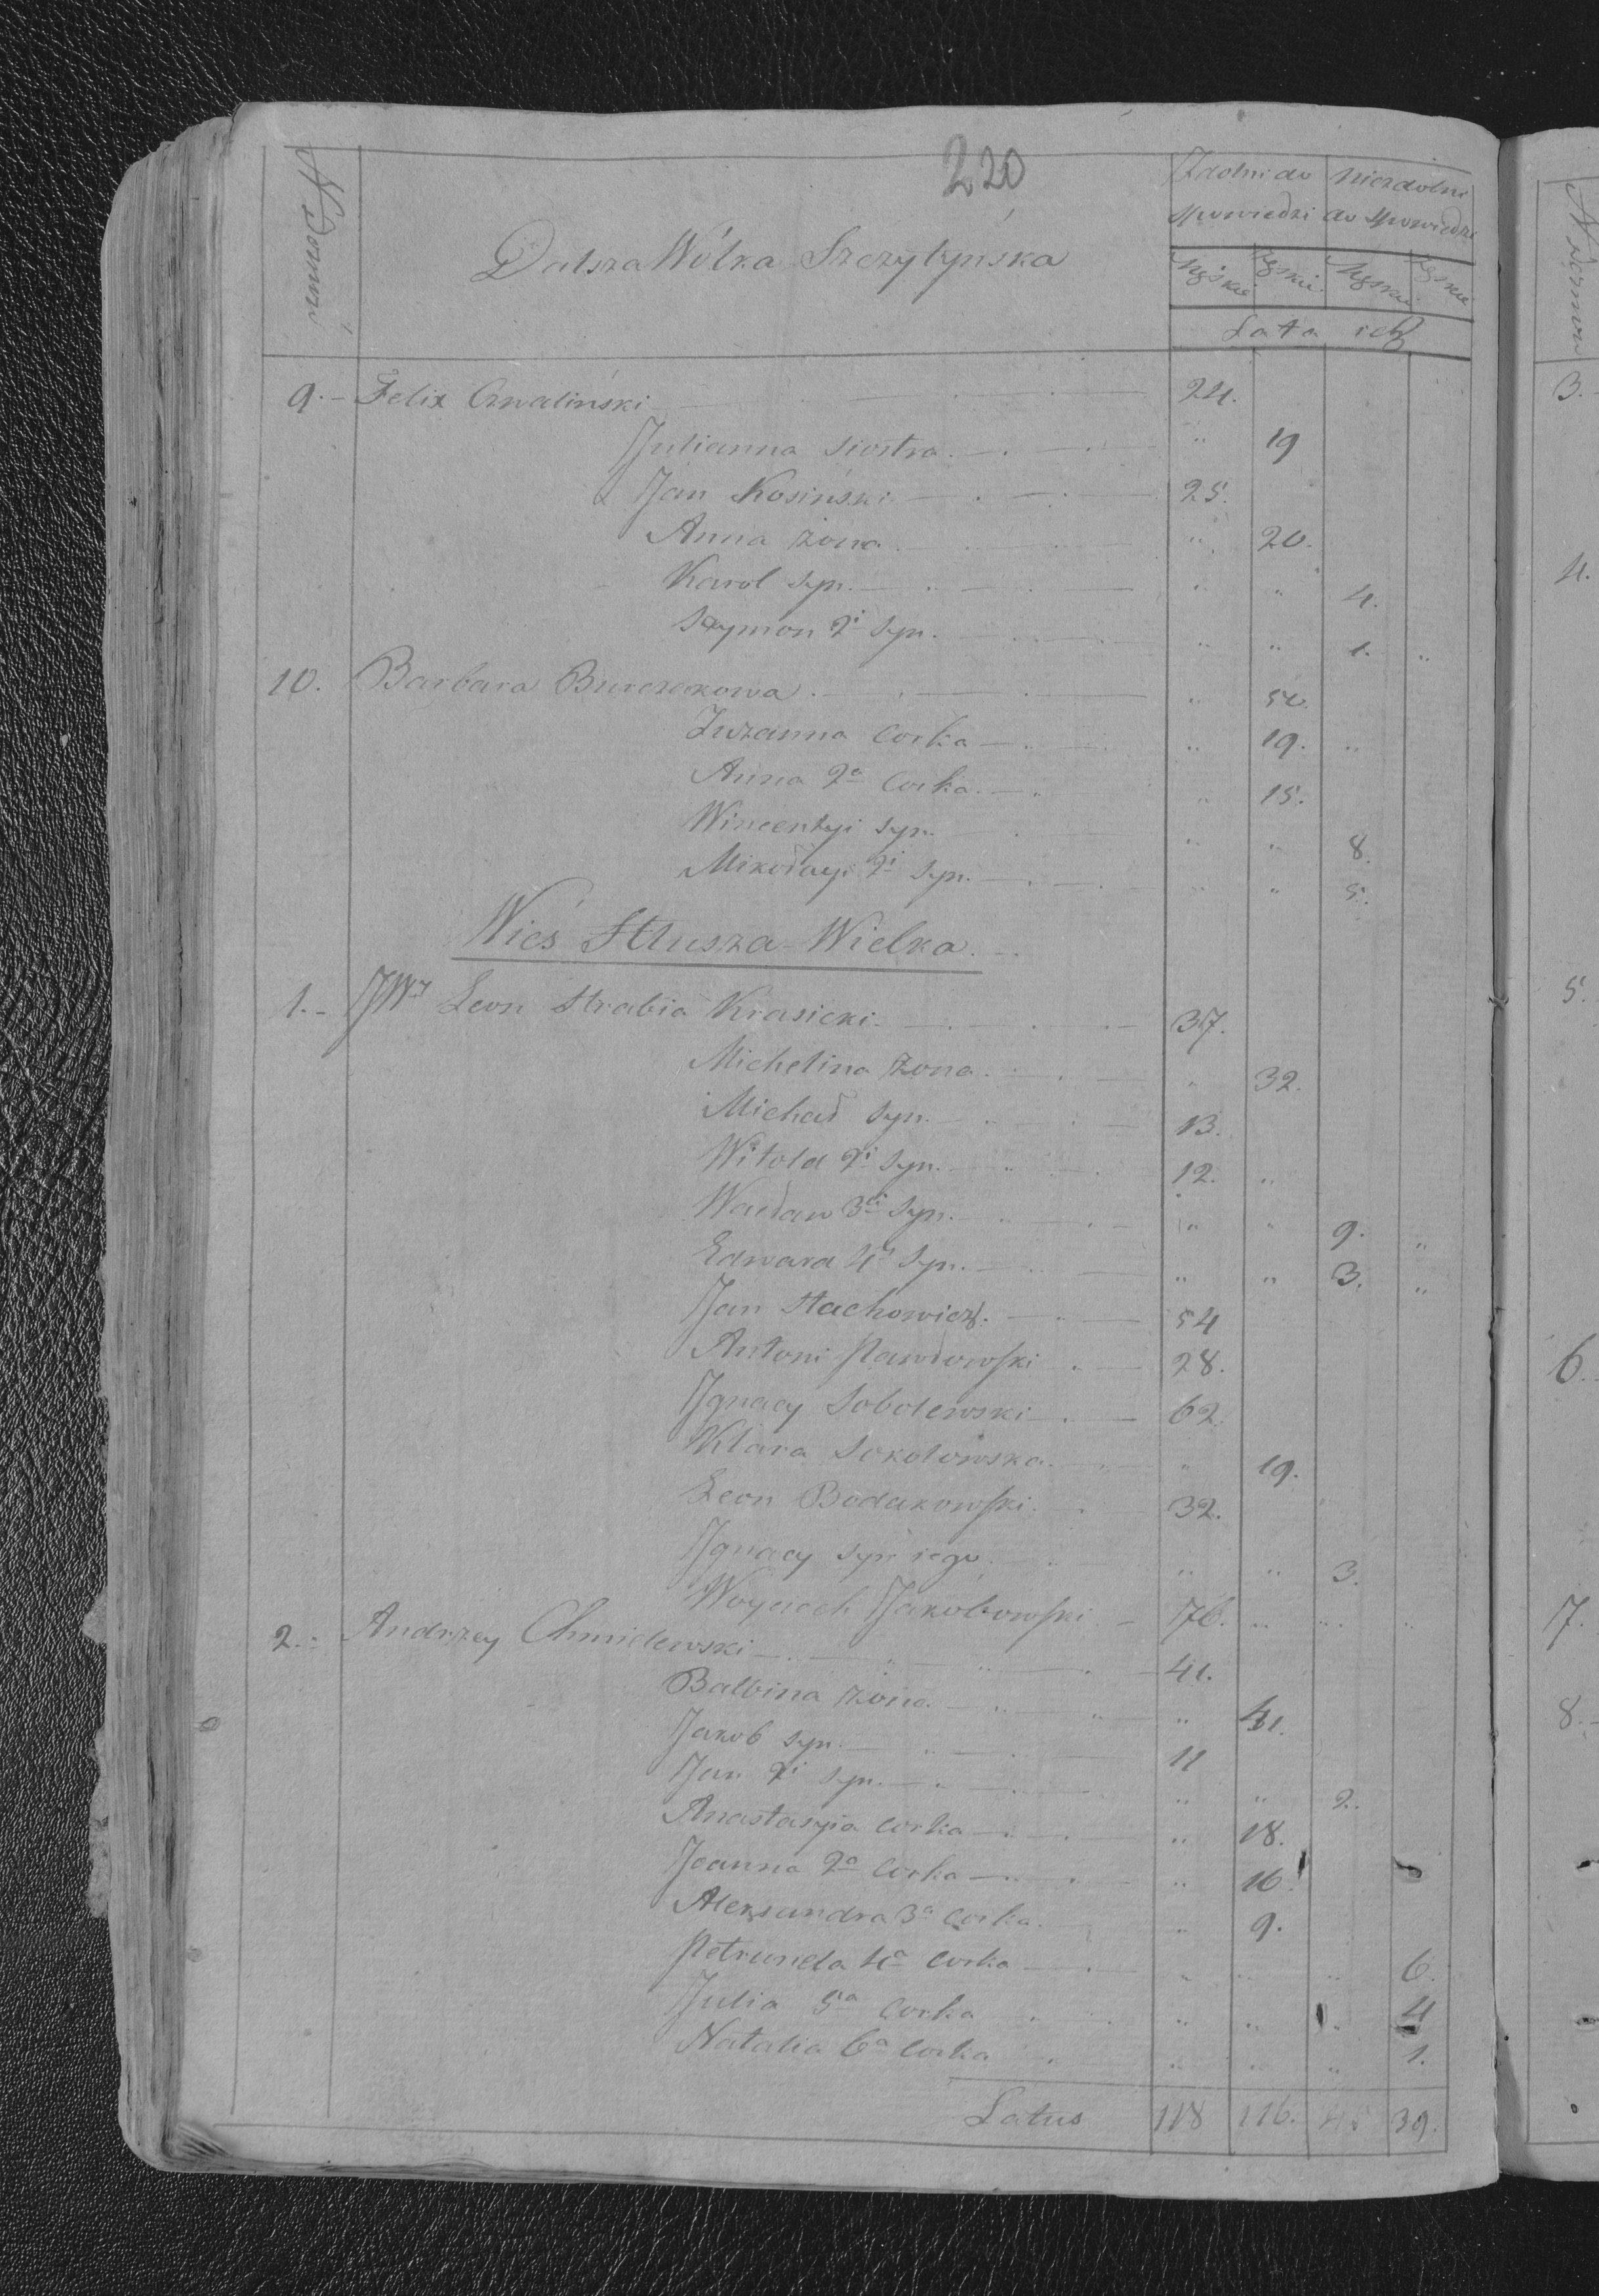 220
N Domur
Dalsza Wólka Szczytyńska
Zdolni do spowiedzi
Niezdolni do spowiedzi
Męskie Żęskie Męskie Żęskie
Lata ich
9. Felix Czwaliński 24.
Julianna siostra 19
Jan Kosiński 25.
Anna żona 20.
Karol syn 4.
Szymon 2i syn. 1.
10. Barbara Burczekowa 50.
Zuzanna corka 19.
Anna 2a Corka 15.
Wincentyi syn. 8.
Mikołayi 2i syn. 5.
Wieś Stłusza Wielka
1. JWy Leon Hrabia Krasicki 37.
Michelina żona 32.
Michał syn. 13.
Witold 2i syn. 12.
Wacław 3ci syn. 9.
Edward 4i syn. 3.
Jan Stachowicz. 54
Antoni Pawłowski 28.
Ignacy Sobolewski 62.
Klara Sokołowska 19.
Leon Bodakowski 32.
Ignacy syn iego 3.
Woyciech Jakóbowski 76.
2. Andrzey Chmielewski 41.
Balbina żona 41.
Jakob syn 11
Jan 2i syn. 2.
Anastasyia corka 18.
Joanna 2a Corka 16.
Alexandra 3a corka 9.
Petrunela 4a corka 6.
Julia 5a corka 4
Natalia 6a Corka 1.
Latus 118 116. 39.
N Domow
3.
4.
5.
6.
7.
8.